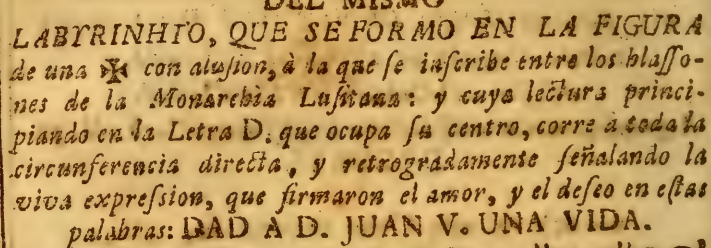 DEL MISMO
LABYRINHTO, QUE SE FORMO EN LA FIGURA
de una ✠ con alusion, à la que se inscribe entre los blasso-
nes de la Monarchia Lusitana: y cuya lectura princi-
piando en la Letra D. que ocupa su centro, corre à toda la
circunferencia directa, y retrogradamente señalando la
viva expression, que firmaron el amor, y el deseo en estas
palabras: DAD A D. JUAN V. UNA VIDA.